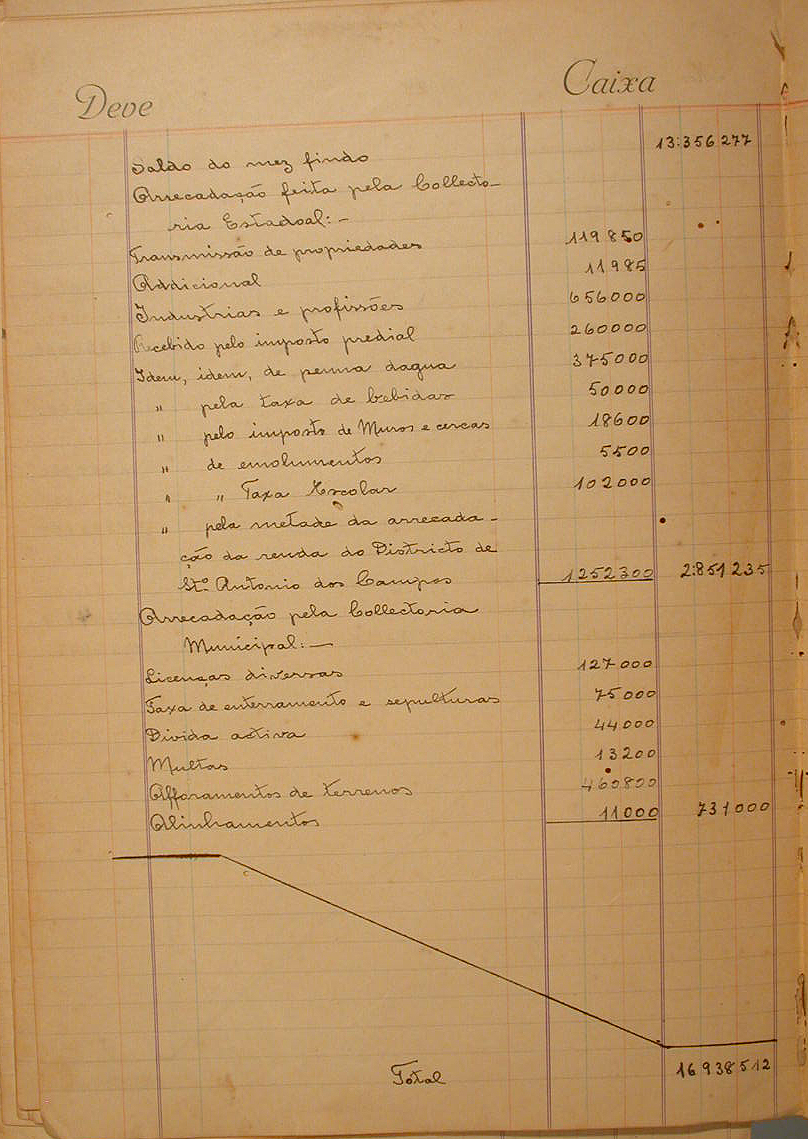 Deve Caixa
Saldo do mez findo 13:356277
Arrecadação feita pela Collecto-
ria Estadoal: -
Transmissão de propriedades 119850
Addicional 11985
Industrias e profissões 656000
Recebido pelo imposto predial 260000
Idem, idem, de penna dagua 375000
" pela taxa de bebidas 50000
" pelo imposto de Muros e cercas 18600
" de emolumentos 5500
" " Taxa Escolar 102000
" pela metade da arrecada-
ção da renda do Districto de
Stº Antonio dos Campos 1252300 2:851235
Arrecadação pela Collectoria
Municipal: —
Licenças diversas 127000
Taxa de enterramento e sepulturas 75000
Divida activa 44000
Multas 13200
Afforamentos de terrenos 460800
Alinhamentos 11000 731000
Total 16938512